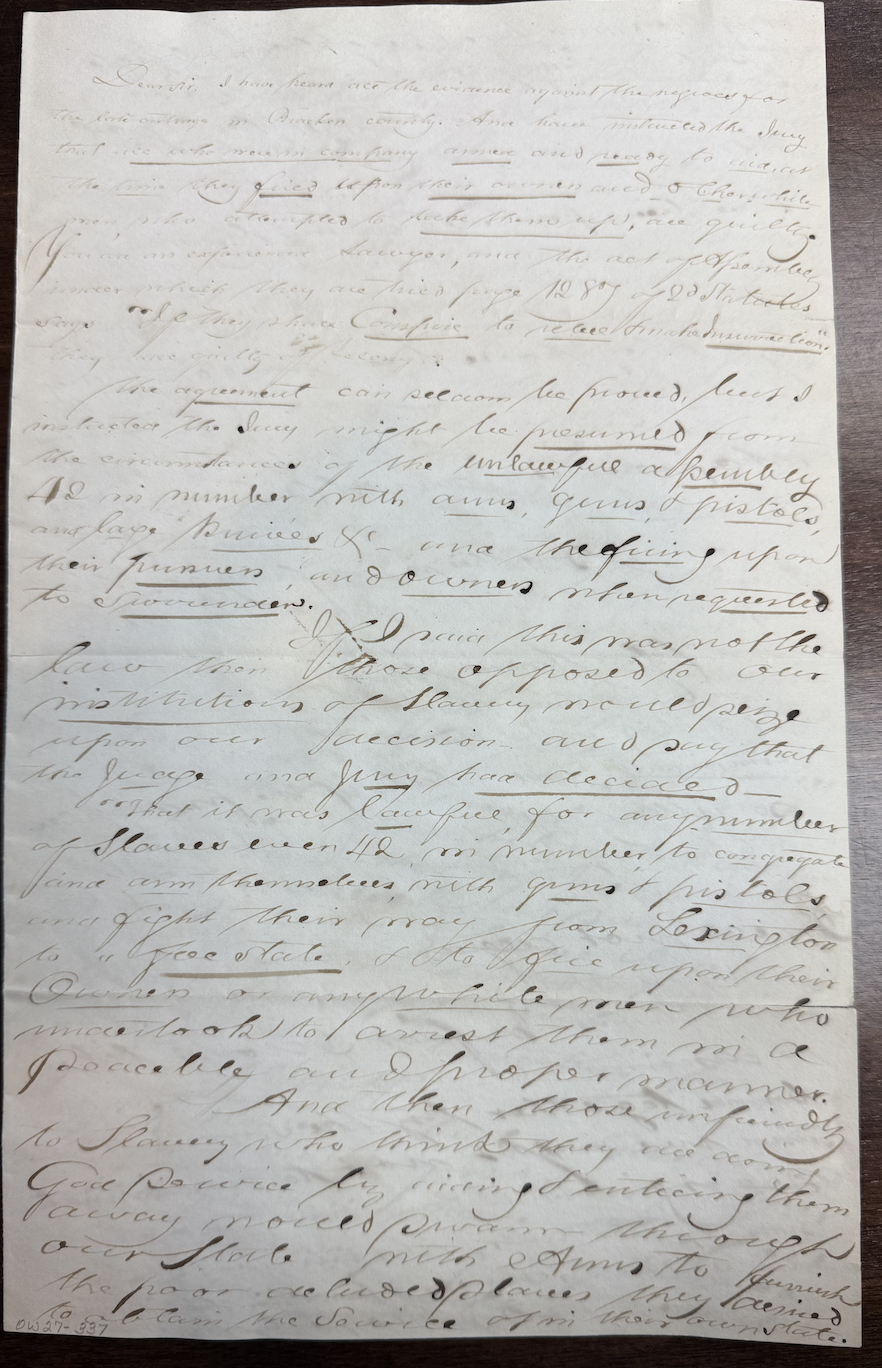 Dear Sir, I have heard all the evidence against the negroes for
the late outrage in Bracken county. And have instructed the Jury
that all who were in company armed and ready to aid at
the time they fired upon their owners and other white
men who attempted to take them up, are guilty.
You are an experienced Lawyer, and the act of Assembly
under which they are tried page 1287 of 2d Statutes
says "If they shall Conspire to rebel & make Insurrection"
they are guilty of
the agreement can seldom be proved, but I
instructed the Jury might be presumed from
the circumstances of the unlawful assembly
42 in number with arms, guns, & pistols,
and large knives &c - and the firing upon
their pursuers, and owners when requested
to surrender.
If I said this was not the
law then those opposed to our
institutions of Slavery would seize
upon our decision - and say that
the Judge and Jury had decided -
"That it was lawful, for any number
of Slaves even 42 in number, to congregate
and arm themselves, with guns & pistols,
and fight their way from Lexington
to a free state, & to fire upon their
Owners or any white men who
undertook to arrest them in a
peaceble and proper manner.
And then those unfriendly
to Slavery who think they are doing
God Service by aiding & enticing them
away would swarm through
our State with Arms to furnish
the poor deluded Slaves they desired
to obtain the Service of in their own state.
OW27-337